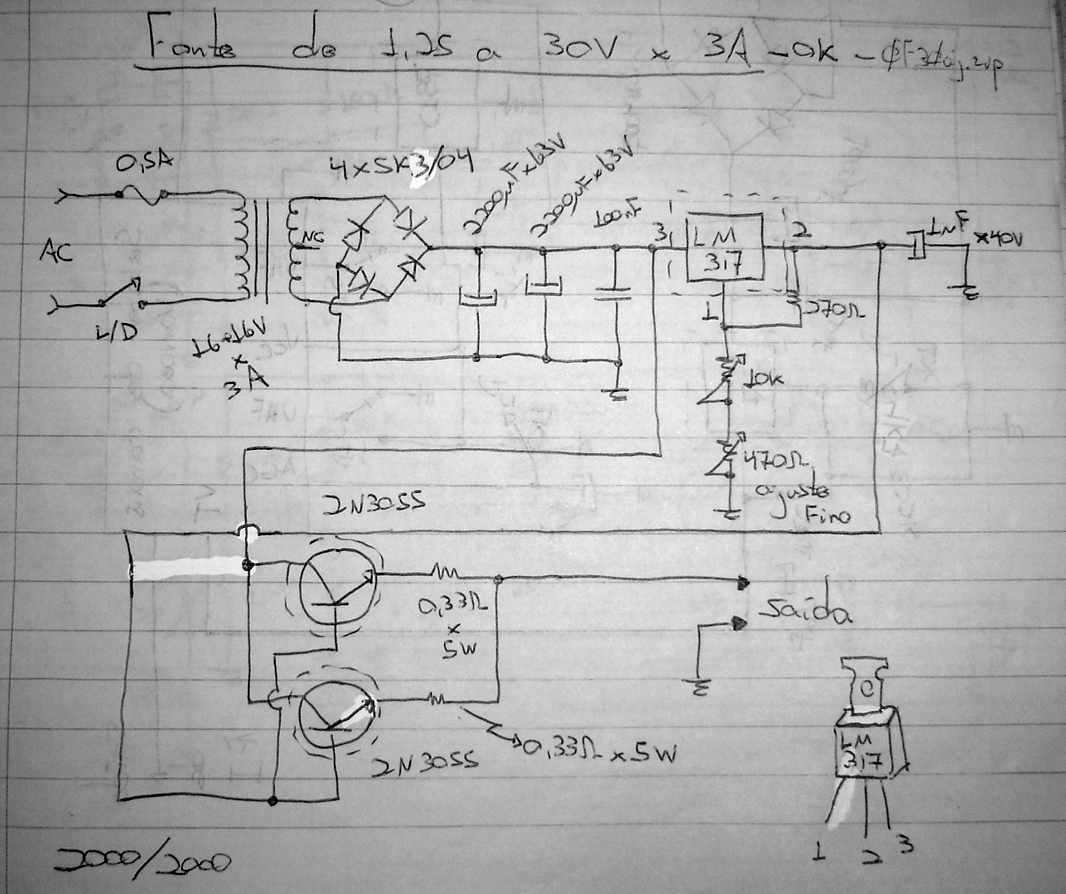 Fonte de 1,25 a 30V x 3A - OK -
0,5A
4xSK3/04
2200µF x 63V
2200µF x 63V
100nF
AC
NC
3
LM
317
2
1µF
x40V
L/D
16+16V
x
3A
1
270Ω
10K
470Ω
ajuste
Fino
2N3055
0,33Ω
x
5W
Saída
2N3055
0,33Ω x 5W
LM
317
1 2 3
2000/2000